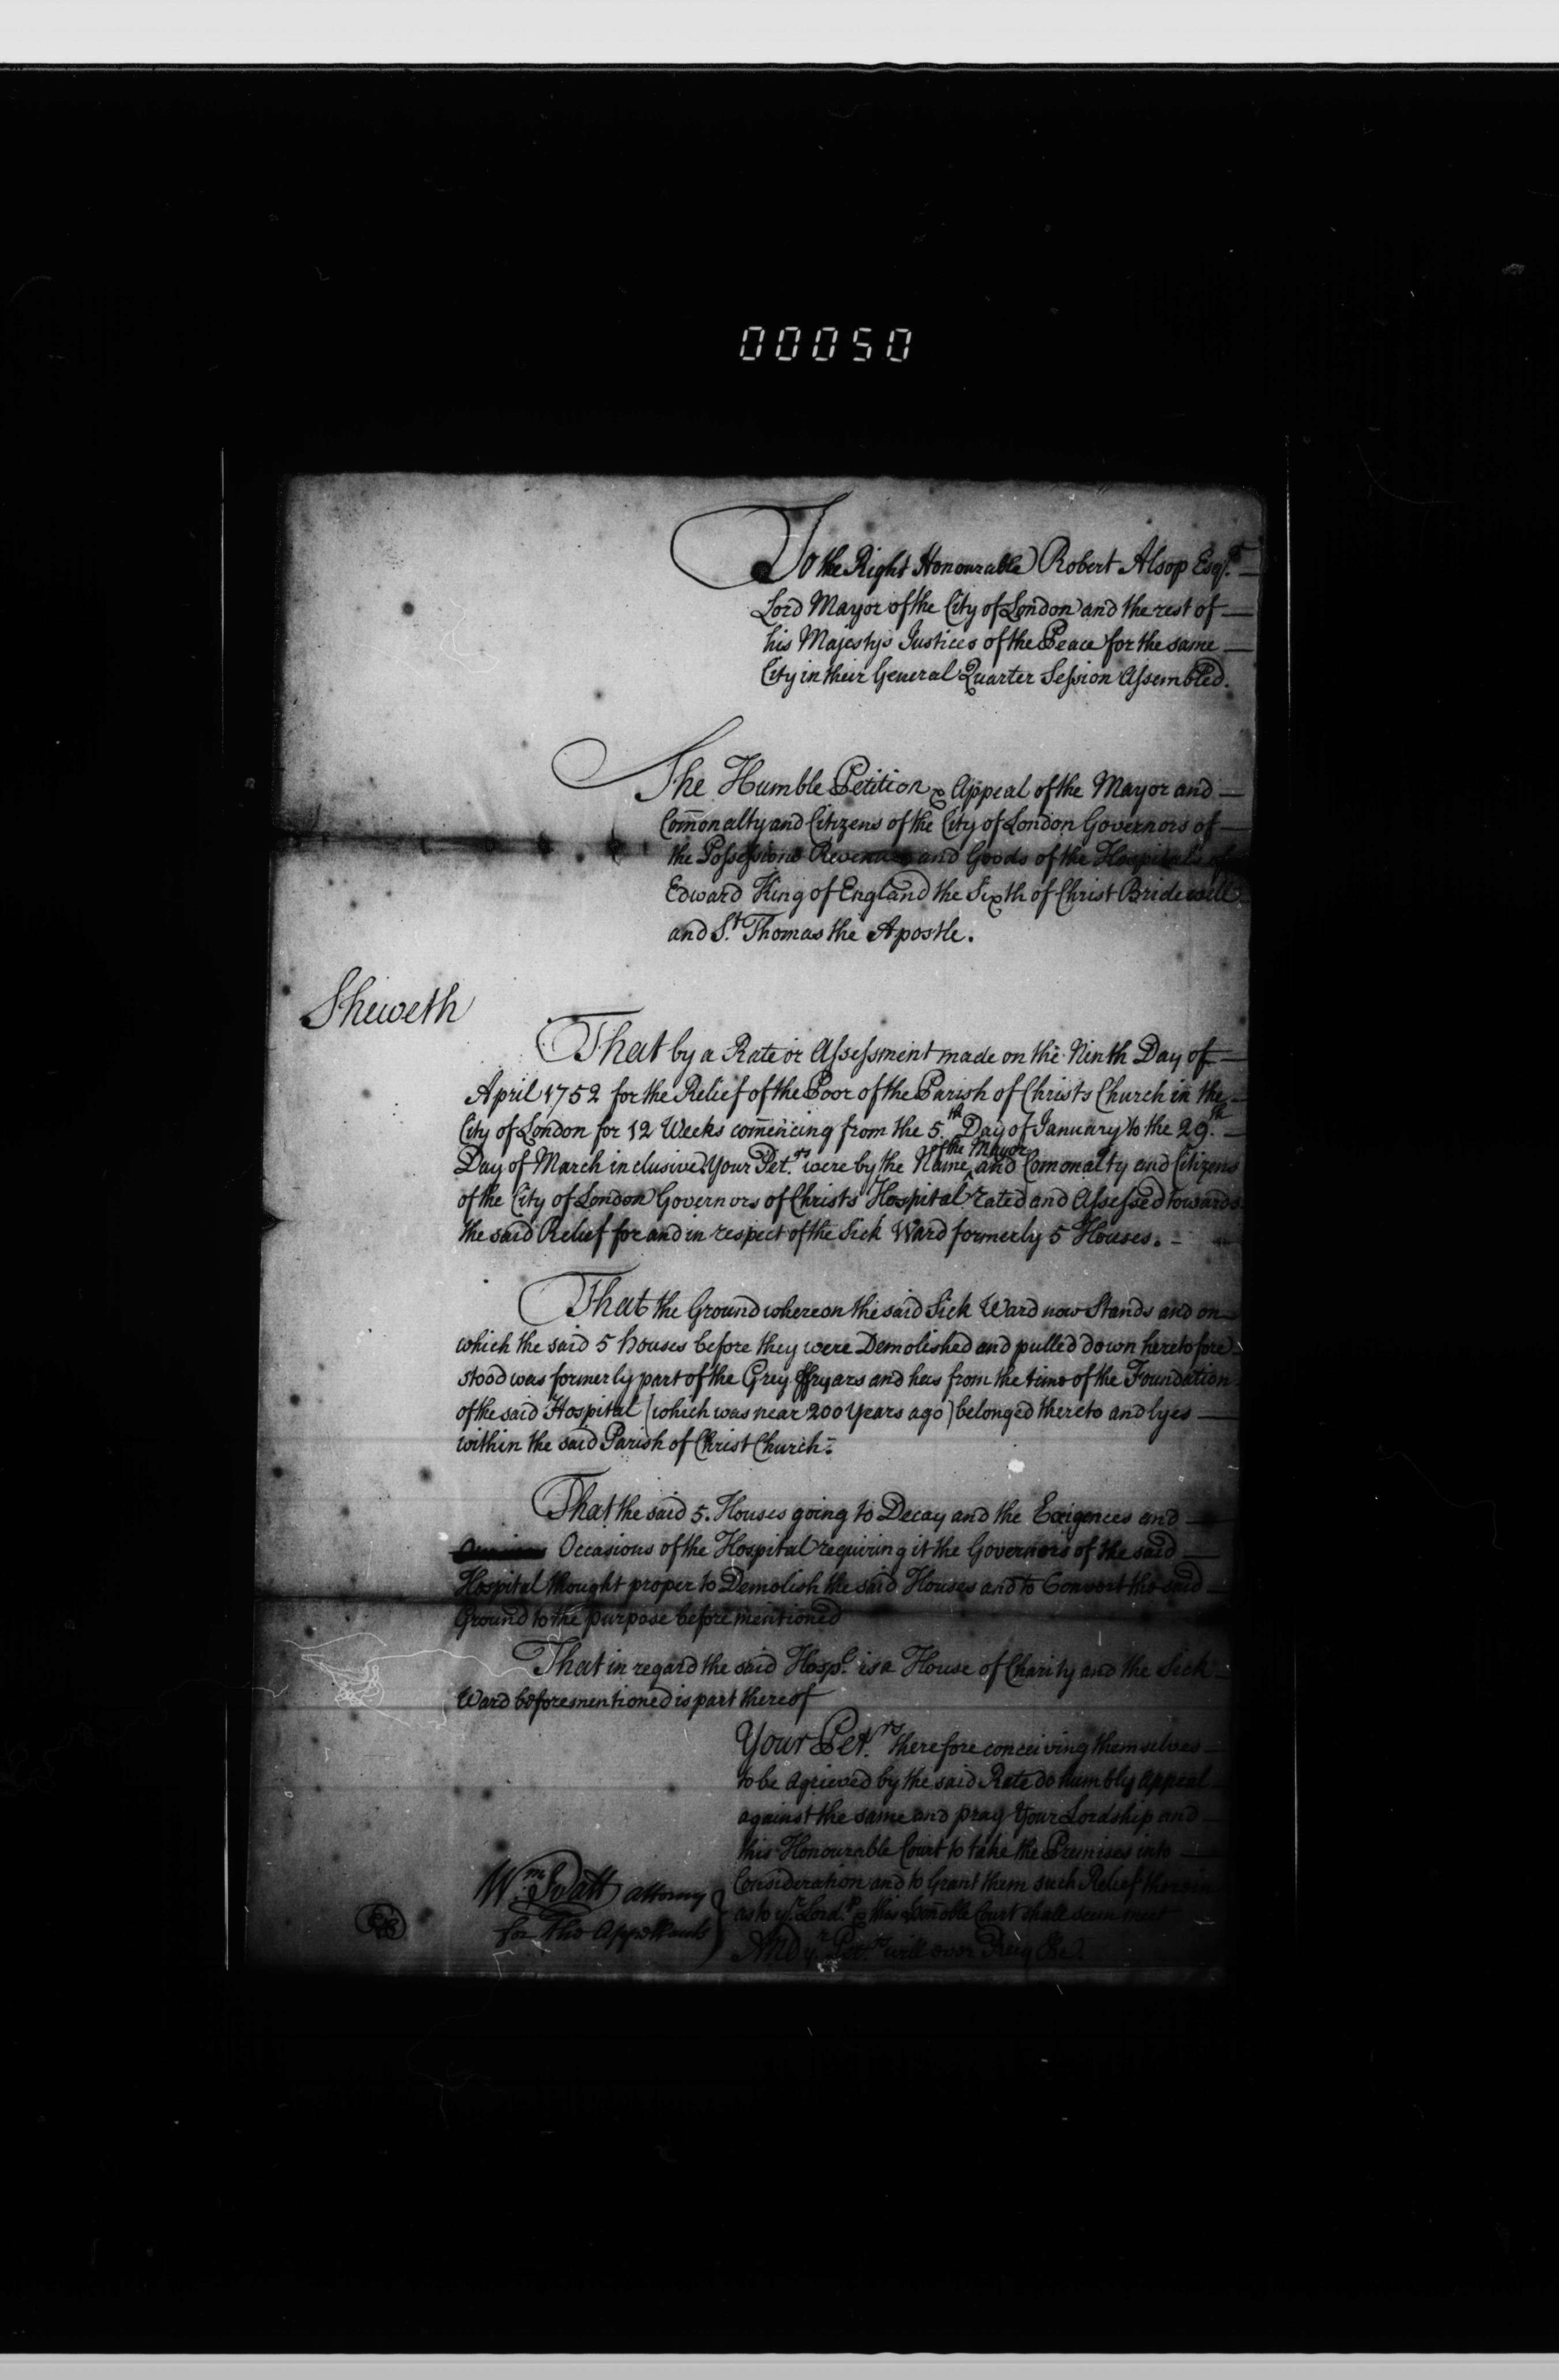 00050
To the Right Honourable Robert Alsop Esqr.
Lord Mayor of the City of London and the rest of
his Majestys Justices of the Peace for the same
City in their General Quarter Session Assembled.
The Humble Petition & Appeal of the Mayor and
Comonalty and Citizens of the City of London Governors of
the Possessions Revenues and Goods of the Hospitals of
Edward King of England the Sixth of Christ Bridewell
and St. Thomas the Apostle.
Sheweth
That by a Rate or Assessment made on the Ninth Day of
April 1752 for the Relief of the Poor of the Parish of Christs Church in the
City of London for 12 Weeks comencing from the 5.th Day of January to the 29.th
of the Mayor
Day of March inclusive Your Pet.rs were by the Name and Comonalty and Citizens
of the City of London Governors of Christs Hospital rated and Assessed towards
the said Relief for and in respect of the Sick Ward formerly 5 Houses.
That the Ground whereon the said Sick Ward now Stands and on
which the said 5 houses before they were Demolished and pulled down heretofore
stood was formerly part of the Grey ffryars and has from the time of the Foundation
of the said Hospital (which was near 200 Years ago) belonged thereto and lyes
within the said Parish of Christ Church.
That the said 5. Houses going to Decay and the Exigences and
Occasions of the Hospital requiring it the Governors of the said
Hospital thought proper to Demolish the said Houses and to Convert the said
Ground to the purpose before mentioned
That in regard the said Hospl. is a House of Charity and the Sick
Ward beforementioned is part thereof
Your Pet.rs therefore conceiving themselves
to be Agrieved by the said Rate do humbly Appeal
against the same and pray Your Lordship and
this Honourable Court to take the Premises into
Consideration and to Grant them such Relief therein
as to yr. Lordp. & this Honoble Court shall seem meet
And yr. Pet.rs will ever Pray &c.
Wm. Pratt attorney
for The Appellants